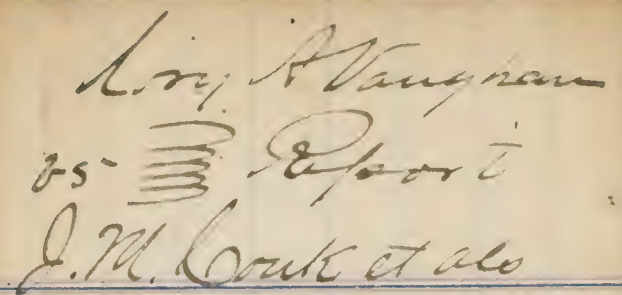 A Vaughan
vs Report
J. M. Couk et als